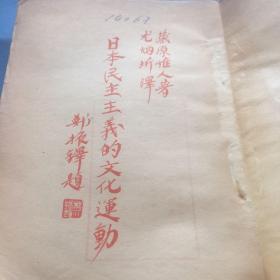 16063
藏原惟人著
尤炳圻譯
日本民主主義的文化運動
鄭振鐸題